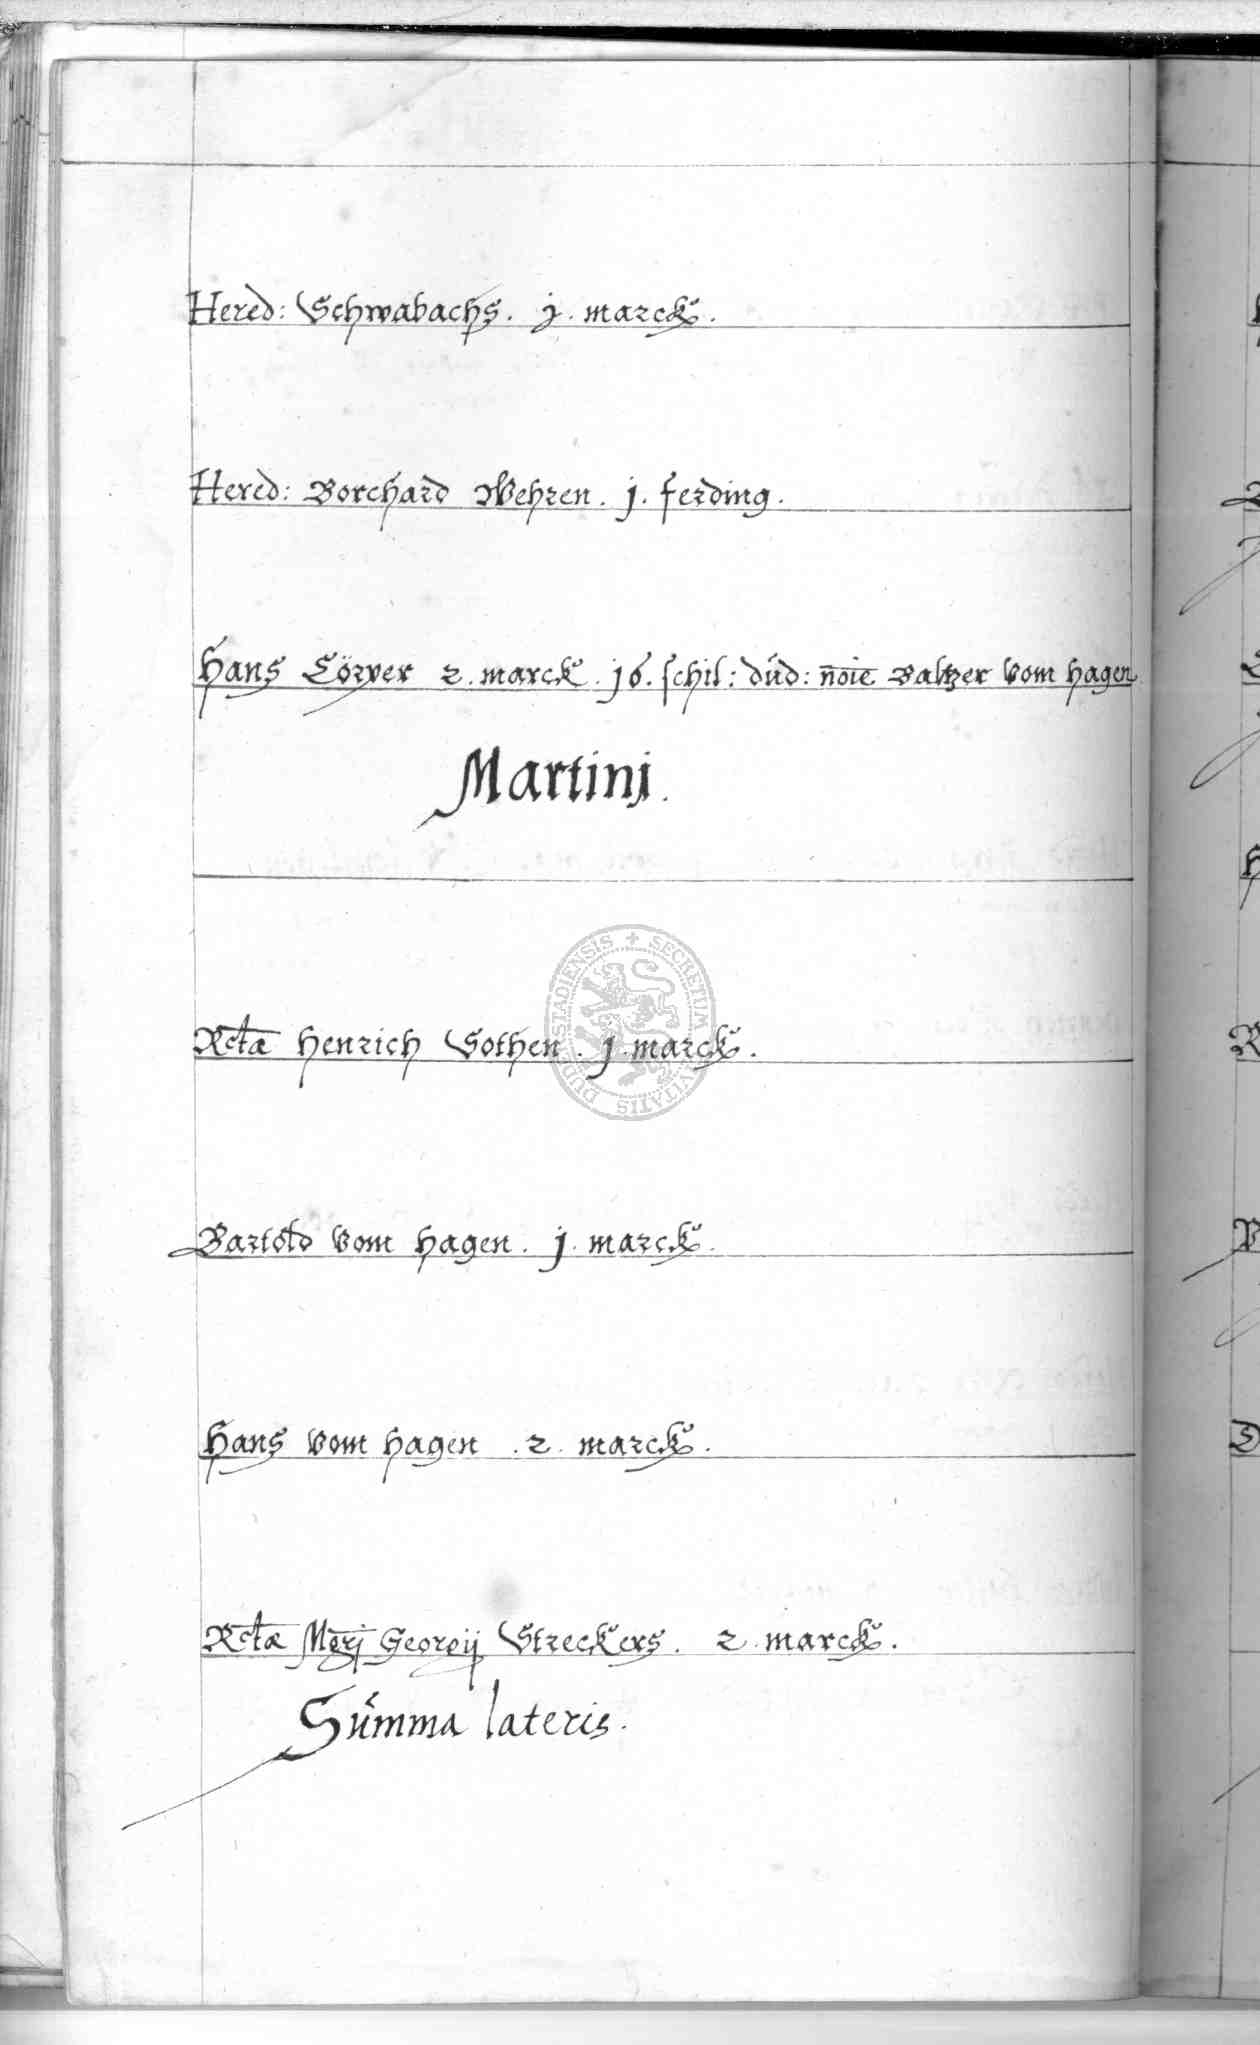 Hered: Schwabachs. j. marck.
Hered: Borchard Wehren. j. ferding.
Hans Cörver 2. marck. 16. schil: dud: noie Baltzer vom Hagen
Martinj.
Rctæ Henrich Sothen. j. marck.
Bartold vom Hagen. j. marck.
Hans vom Hagen. 2. marck.
Rctæ Mgrj Georgij Streckers. 2. marck.
Summa lateris.
SECRETUM CIVITATIS DUDERSTADIENSIS